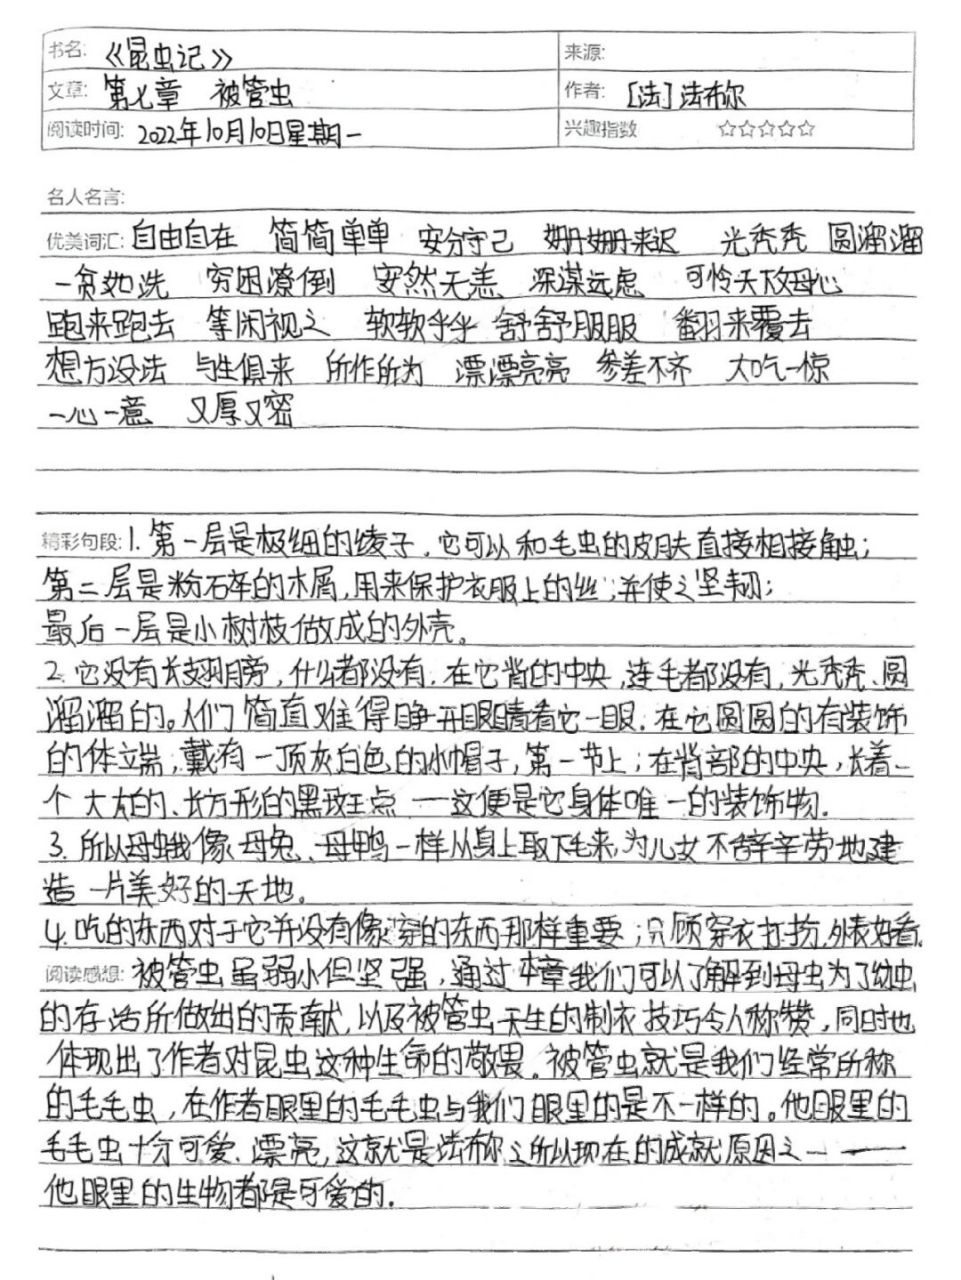 书名: 《昆虫记》 来源:
文章: 第七章 被管虫 作者: [法]法布尔
阅读时间: 2022年10月10日星期一 兴趣指数 ☆☆☆☆☆
名人名言:
优美词汇: 自由自在 简简单单 安分守己 姗姗来迟 光秃秃 圆溜溜
一贫如洗 穷困潦倒 安然无恙 深谋远虑 可怜天下父母心
跑来跑去 等闲视之 软软乎乎 舒舒服服 翻来覆去
想方没法 与生俱来 所作所为 漂漂亮亮 参差不齐 大吃一惊
一心一意 又厚又密
精彩句段: 1. 第一层是极细的绫子，它可以和毛虫的皮肤直接相接触；
第二层是粉碎的木屑，用来保护衣服上的丝，并使之坚韧；
最后一层是小树枝做成的外壳。
2. 它没有长翅膀，什么都没有. 在它背的中央，连毛都没有，光秃秃、圆
溜溜的。人们简直难得睁开眼睛看它一眼. 在它圆圆的有装饰
的体立端，戴有一顶灰白色的小帽子，第一节上；在背部的中央，长着一
个大大的、长方形的黑斑点 — 这便是它身体唯一的装饰物.
3. 所以母蛾像母兔、母鸭一样从身上取下毛来，为儿女不辞辛劳地建
造一片美好的天地。
4. 吃的东西对于它并没有像穿的东西那样重要；只顾穿衣打扮，外表好看.
阅读感想: 被管虫虽弱小但坚强，通过本章我们可以了解到母虫为了幼虫
的存活所做出的贡献，以及被管虫天生的制衣技巧令人称赞，同时也
体现出了作者对昆虫这种生命的敬畏。被管虫就是我们经常所称
的毛毛虫，在作者眼里的毛毛虫与我们眼里的是不一样的。他眼里的
毛毛虫十分可爱、漂亮，这就是法布尔之所以现在的成就原因之一 ——
他眼里的生物都是可爱的.